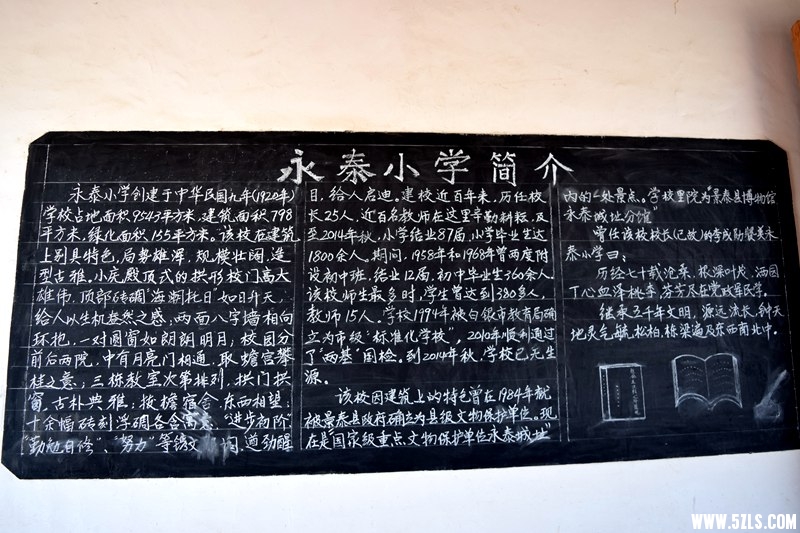 永泰小学简介
永泰小学创建于中华民国九年(1920年)
学校占地面积9545平方米,建筑面积798
平方米,绿化面积155平方米。该校在建筑
上别具特色,局势雄浑,规模壮阔,造
型古雅。小庑殿顶式的拱形校门高大
雄伟,顶部砖碉"海潮托日"如日升天,
给人以生机盎然之感;两面八字墙相向
环抱,一对圆窗如朗朗明月;校园分
前后两院,中有月亮门相通,取蟾宫攀
桂之意;三栋教室次第排列,拱门拱
窗,古朴典雅;教楼宿舍东西相望;
十余幅砖刻浮碉各含寓意,"进步初阶"
"勤勉自修"、"努力"等镌文 间,遒劲醒
目,给人启迪。建校近百年来,历任校
长25人,近百名教师在这里辛勤耕耘,及
至2014年秋,小学结业87届,小学毕业生达
1800余人,期间,1958年和1968年曾两度附
设初中班,结业12届,初中毕业生360余人。
该校师生最多时,学生曾达到380多人,
教师15人。学校1994年被白银市教育局确
立为市级"标准化学校",2010年顺利通过
了"两基"国检。到2014年秋,学校已无生
源。
该校因建筑上的特色曾在1984年就
被景泰县政府确立为县级文物保护单位。现
在是"国家级重点文物保护单位永泰城址"
内的一处景点。学校里院为"景泰县博物馆
永泰城址分馆"
曾任该校校长(已故)的李成勋赞美永
泰小学曰:
历经七十载沧桑,根深叶茂,洒园
丁心血泽桃李,芬芳及在党政军民学。
继承五千年文明,源远流长,钟天
地灵气毓松柏,栋梁遍及东西南北中。
WWW.5ZLS.COM